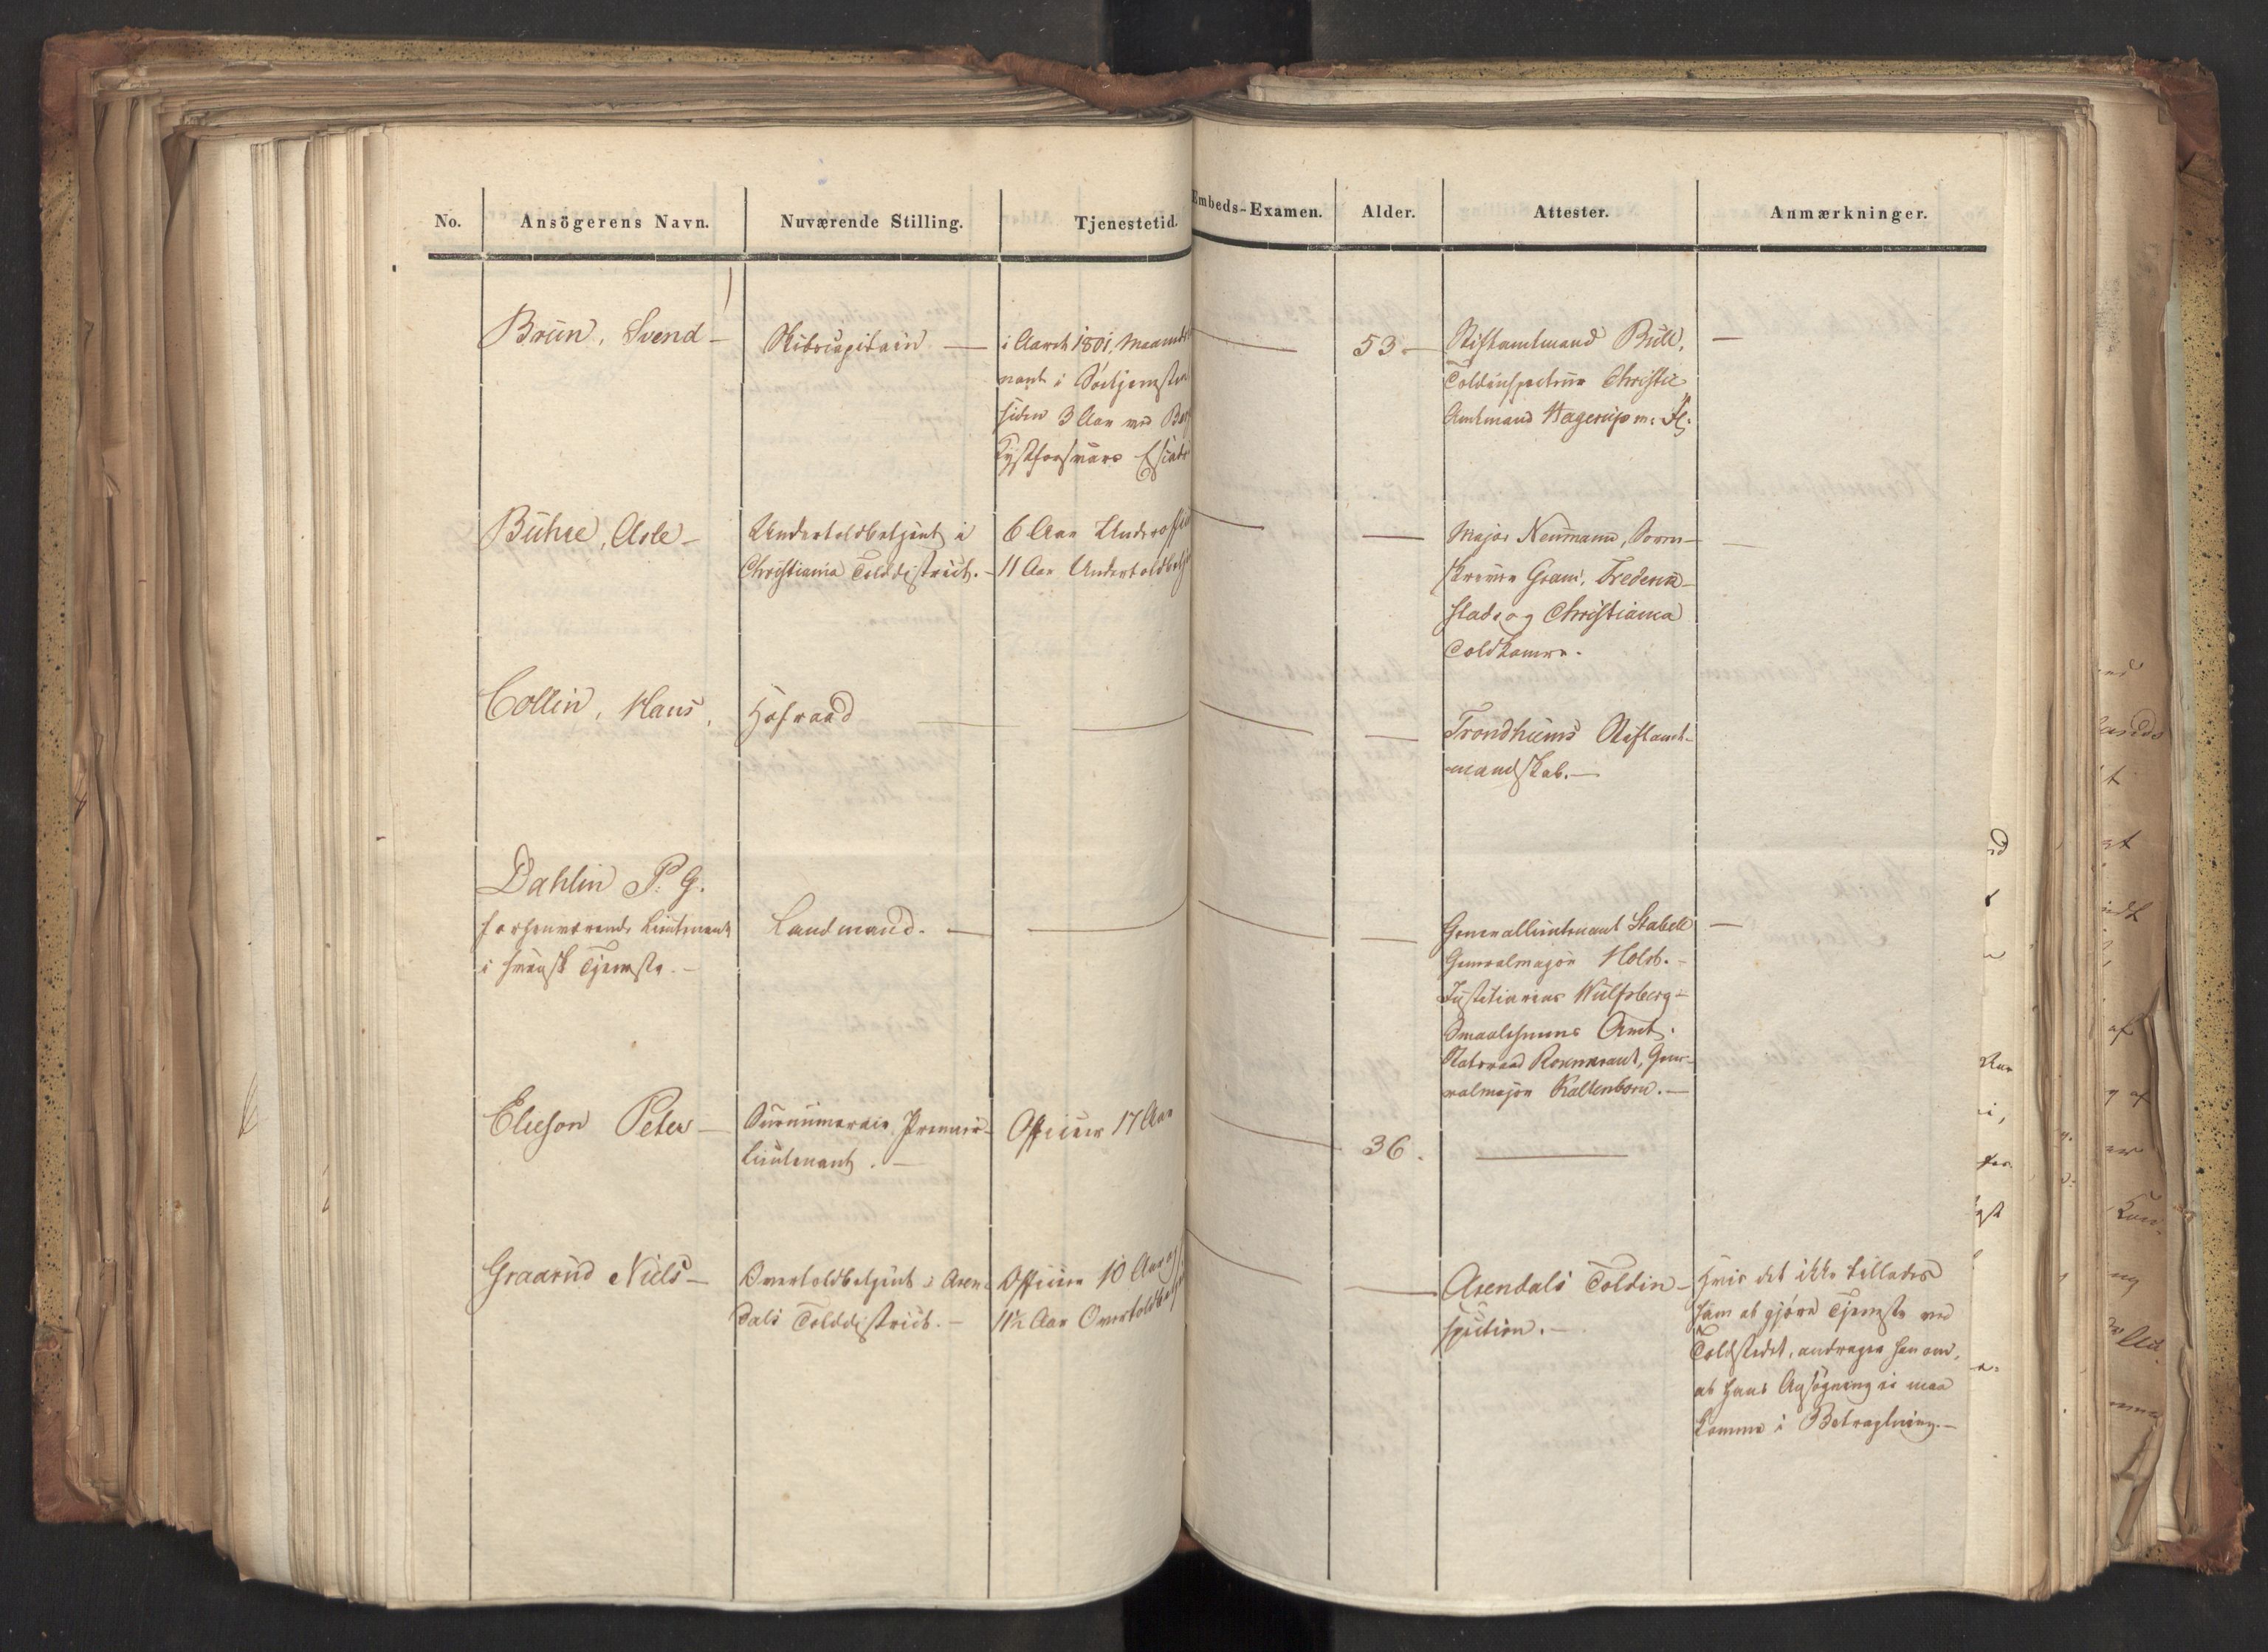 No. Ansögerens Navn. Nuværende Stilling. Tjenestetid. Embeds-Examen. Alder. Attester. Anmærkninger.
Brün, Svend - Skibscapitain — i Aaret 1801, Maaneds
nant i Søetjenesten
siden 3 Aar ved
Kystforsvars
53. Stiftamtmand Bull,
Toldinspecteur Christie
Amtmand Hagerup m: Fl: —
Bühre, Asle - Undertoldbetjent i
Christiania Tolddistrict. -
6 Aar Underoffic
11 Aar Undertoldbetje
— Major Neumann, Soren-
skriver Gram, Frederik-
stads og Christiania
Toldkamre.
Collin, Hans, Hofraad — — Trondhiems Stiftamt-
mandskab. —
Dahlin P. G.
forhenværende Lieutenant
i svensk Tjeneste. -
Landmand. —
— Generallieutenant Stabell —
Generalmajor Holst. -
Justitiarius Wulfsberg -
Smaalehnenes Amt.
Statsraad Rosenkrantz, Gene-
ralmajor Kaltenborn. —
Elieson Peter — Surnumerair Premier-
Lieutenant. —
Officier 17 Aar
36. —
Graarud Niels - Overtoldbetjent i Aren-
dals Tolddistrict. -
Officier 10 Aar og
11½ Aar Overtoldbetje
— Arendals Toldin-
spection. -
Hvis det ikke tillades
ham at gjøre Tjeneste ved
Toldstedet, andrager han om,
at hans Ansøgning ei maa
komme i Betragtning. —